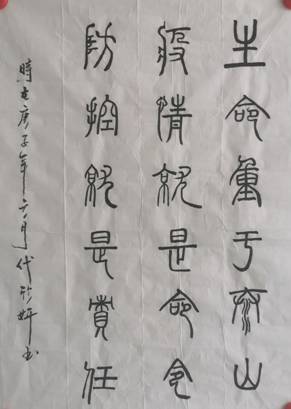 生命重于泰山
疫情就是命令
防控就是責任
時在庚子年六月代欣妍书